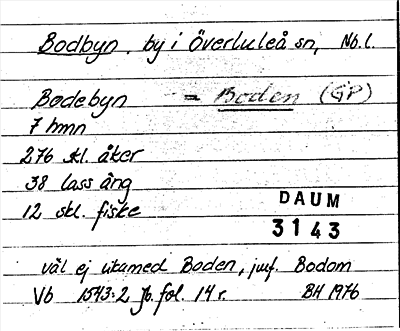 Bodbyn. by i Överluleå sn, Nb.l.
Bodebyn = Boden (GP)
7 hmn
276 skl. åker
38 lass äng
12 skl. fiske
DAUM
3143
väl ej likamed Boden, jmf. Bodom
Vb 1543:2 Jb. fol. 14 r. BH 1976